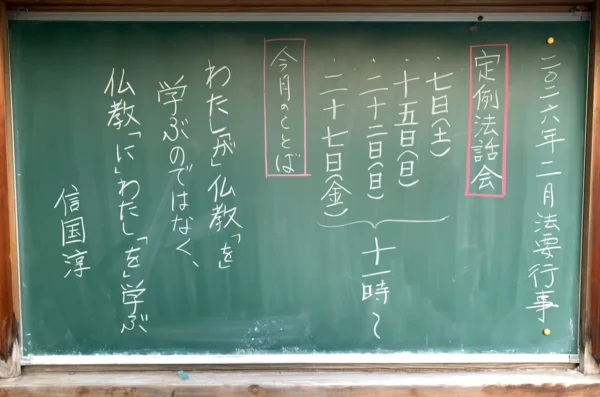 二〇二六年二月法要行事
定例法話会
・七日(土)
・十五日(日)
・二十二日(日)
・二十七日(金)
十一時〜
今月のことば
わたし「が」仏教「を」
学ぶのではなく、
仏教「に」わたし「を」学ぶ
信国淳